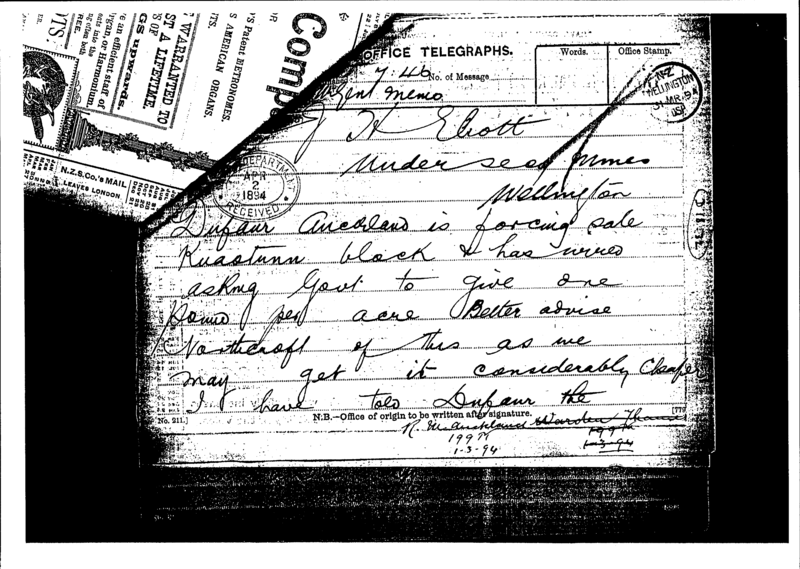 VIS:
e an efficient staff of
rgan, or Harmonium.
ents into the
ngs often both
REE.
GS upwards.
S OF
ST A LIFETIME
WARRANTED TO
'S Patent METRONOMES.
S AMERICAN ORGANS.
TS.
Comp
N.Z.S.Co.'s MAIL
LEAVES LONDON
OFFICE TELEGRAPHS.
Words.
Office Stamp.
7:40
No. of Message
Urgent Memo
N.Z
WELLINGTON
31 MR 94
J H Eliott
Under secy Mines
Wellington
DEPARTMENT
APR
2
1894
RECEIVED
Dufaur Auckland is forcing sale
Kuaotunu block & has wired
asking Govt to give one
pound per acre Better advise
Northcroft of this as we
may get it considerably cheaper
I have told Dufaur the
N.B.—Office of origin to be written after signature.
No. 211.]
Auckland Warden Thames
1-3-94
1-3-94